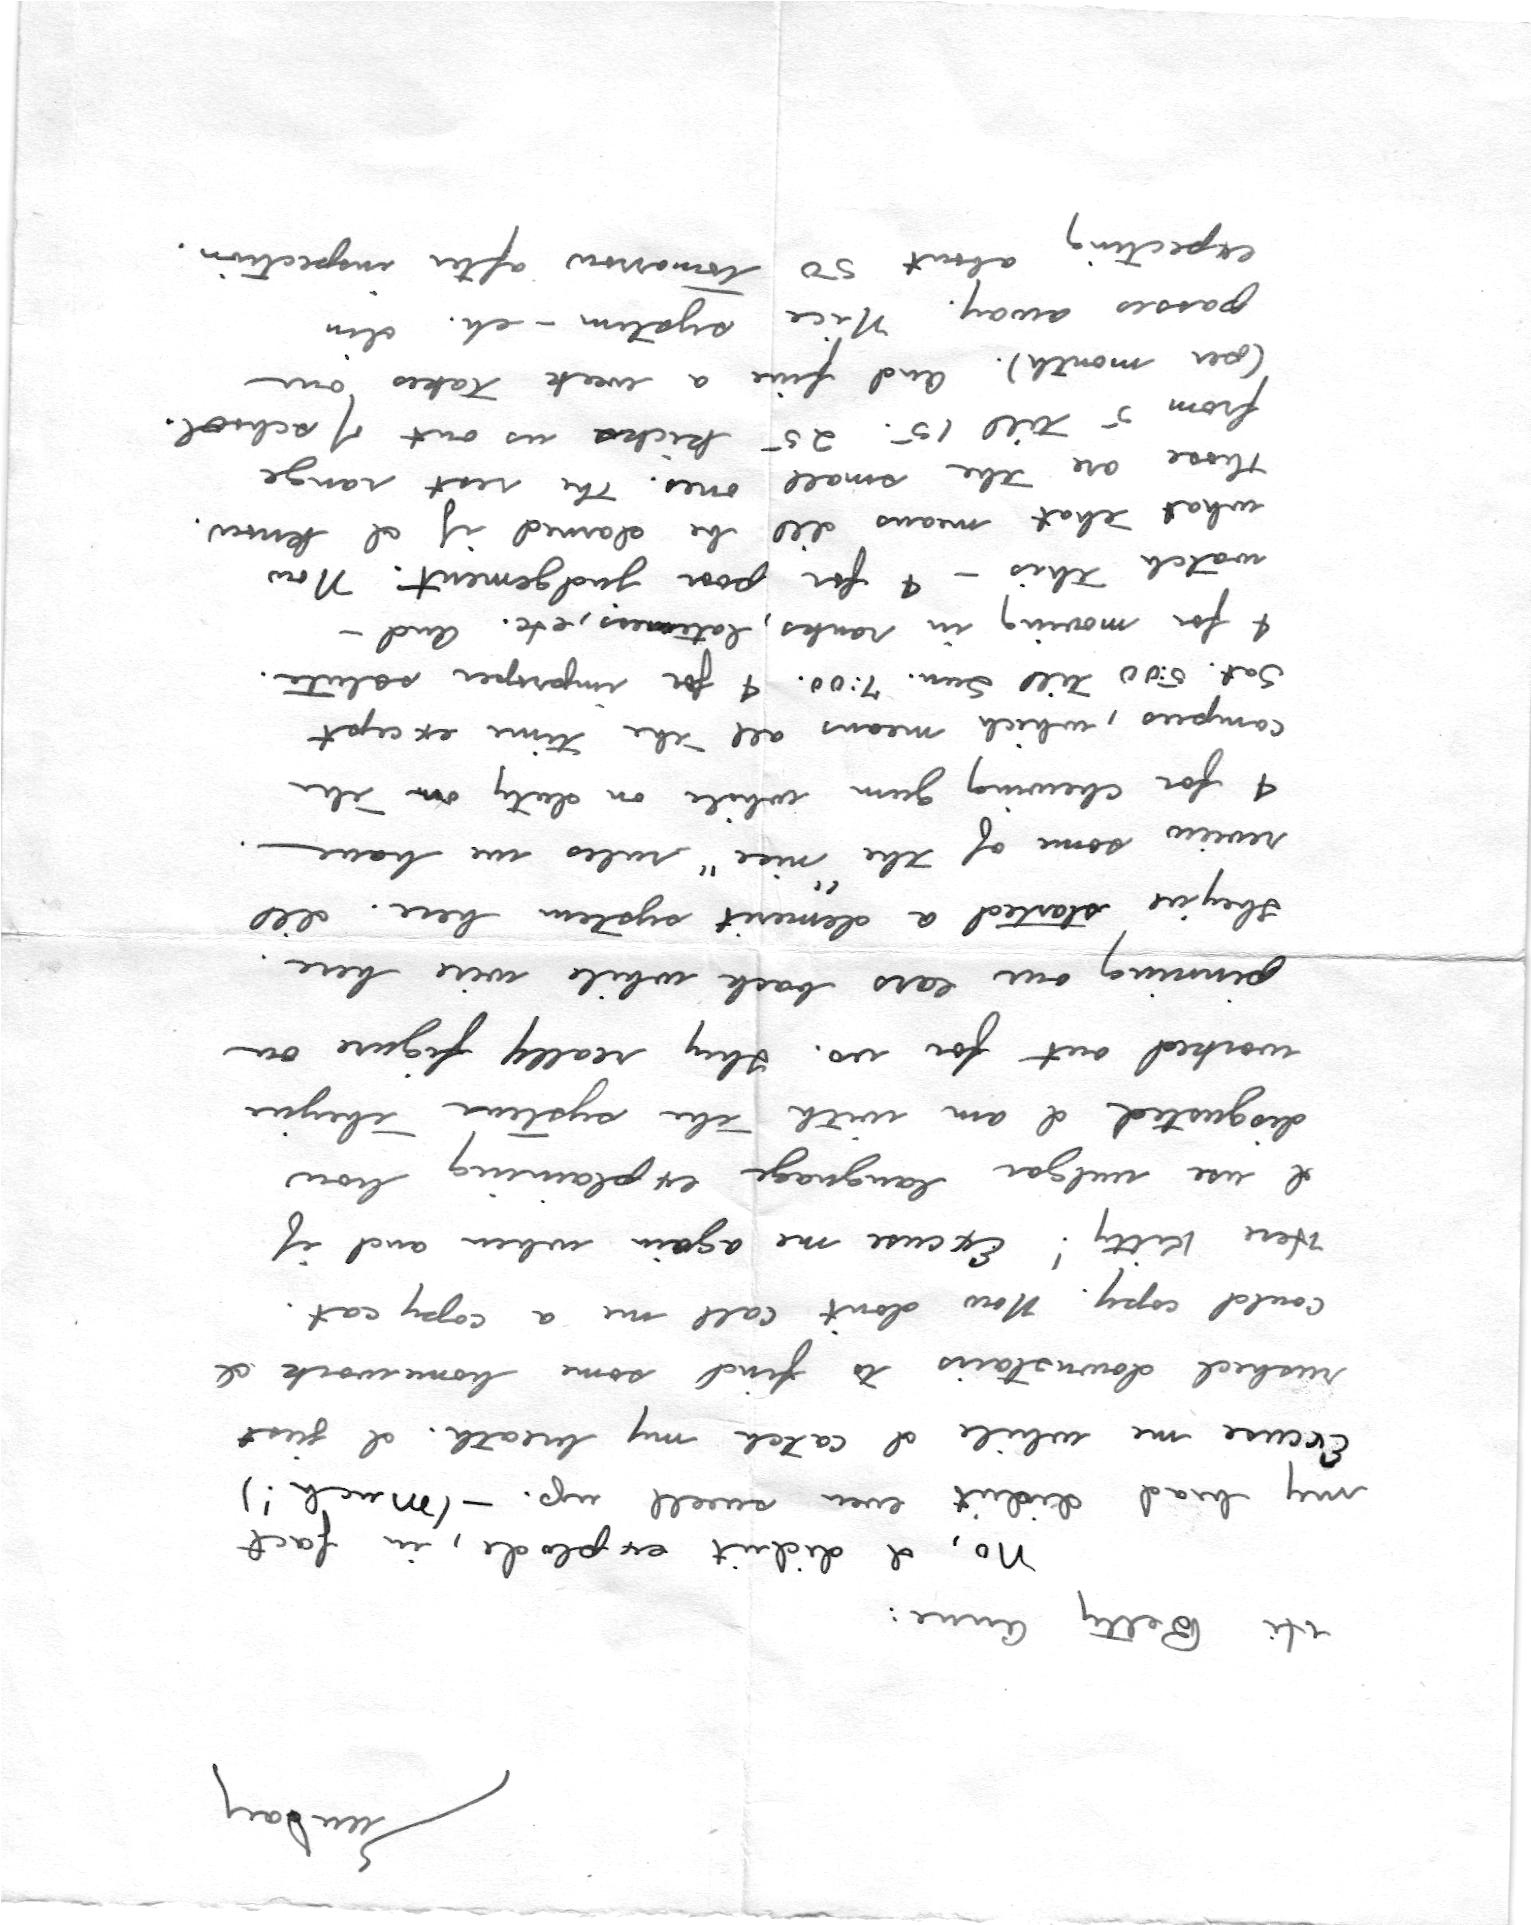 Sunday
Hi Betty Anne:
No, I didn't explode, in fact
my head didn't even swell up. - (Much!)
Excuse me while I catch my breath. I just
rushed downstairs to find some homework I
could copy. Now don't call me a copy cat.
Here Kitty! Excuse me again when and if
I use vulgar language explaining how
disgusted I am with the system they've
worked out for us. They really figure on
pinning our ears back while we're here.
They've started a demerit system here. I'll
review some of the "nice" rules we have.
4 for chewing gum while on duty on the
campus, which means all the time except
Sat. 5:00 till Sun. 7:00. 4 for improper salute.
4 for moving in ranks, lateness, etc. And -
watch this - 4 for poor judgement. Now
what that means I'll be darned if I know.
Those are the small ones. The rest range
from 5 till 15. 25 kicks us out of school.
(per month). And five a week takes our
passes away. Nice system - eh. I'm
expecting about 50 tomorrow after inspection.